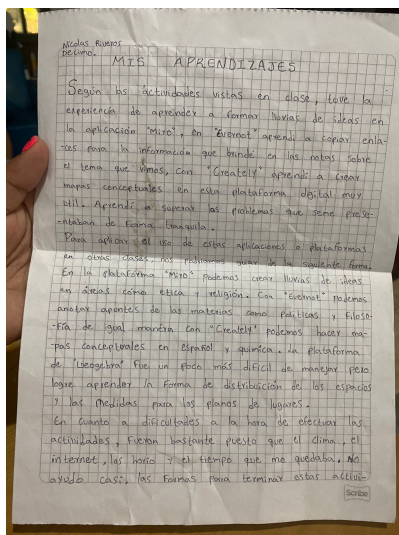 Nicolas Riveros
Decimo.
MIS APRENDIZAJES
Según las actividades vistas en clase, tuve la
experiencia de aprender a formar lluvias de ideas en
la aplicación "Miro", en "Evernot" aprendi a copiar enla-
-ces para la información que brinde en las notas sobre
el tema que vimos, con "Creately" aprendi a crear
mapas conceptuales en esta plataforma digital muy
util. Aprendi a superar los problemas que seme prese-
-ntaban de forma tranquila.
Para aplicar el uso de estas aplicaciones o plataformas
en otras clases, nos podriamos guiar de la siguiente forma.
En la plataforma "Miro" podemos crear lluvias de ideas
en áreas como etica y religión. Con "Evernot" podemos
anotar apuntes de las materias como politicas y filoso-
-fia de igual manera con "Creately" podemos hacer ma-
-pas conceptuales en español y quimica. La plataforma
de "Geogebra" fue un poco más dificil de manejar pero
logre aprender la forma de distribuicion de los espacios
y las medidas para los planos de lugares.
En cuanto a dificultades a la hora de efectuar las
actividades, fueron bastante puesto que el clima, el
internet, los horio y el tiempo que me quedaba, no
ayudo casi, las formas para terminar estas activi-
Scribe